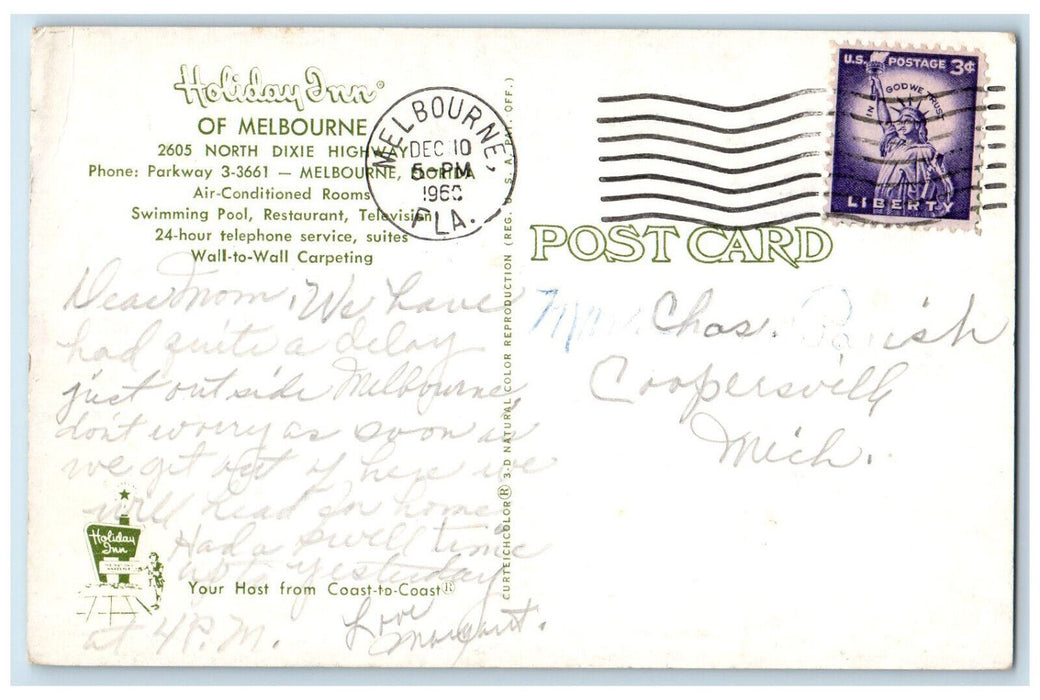 Holiday Inn®
OF MELBOURNE
2605 NORTH DIXIE HIGHWAY
Phone: Parkway 3-3661 — MELBOURNE, FLORIDA
Air-Conditioned Rooms
Swimming Pool, Restaurant, Television
24-hour telephone service, suites
Wall-to-Wall Carpeting
Dear Mom, We have
had quite a delay
just outside Melbourne,
don't worry as soon as
we get out of here we
will head for home
Had a swell time
up to yesterday
at 4 P.M.
Love
Margaret.
Holiday
Inn
Your Host from Coast-to-Coast®
MELBOURNE,
DEC 10
5 - PM
FLA.
CURTEICHCOLOR® 3-D NATURAL COLOR REPRODUCTION (REG. U. S. A. PAT. OFF.)
U.S. POSTAGE 3¢
IN GOD WE TRUST
LIBERTY
POST CARD
Mrs. Chas. Parish
Coopersville
Mich.